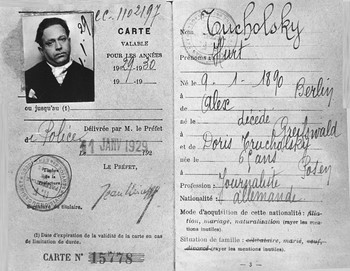 EC-1102197
CARTE
VALABLE
POUR LES ANNÉES
1929-30
19
ou jusqu'au (1)
Délivrée par M. le Préfet
de Police
11 JANV 1929
LE PRÉFET,
Signature du titulaire.
(1) Date d'expiration de la validité de la carte en cas
de limitation de durée.
CARTE N° 15778
Nom Tucholsky
Prénoms Kurt
Né le 9-1-1890
à Berlin
de Alex
décédé Greifswald
et de Doris Tucholsky
née le 6 ans
à Posen
Profession : Journaliste
Nationalité : allemande
Mode d'acquisition de cette nationalité : filia-
tion, mariage, naturalisation (rayer les men-
tions inutiles).
Situation de famille : célibataire, marié, veuf,
divorcé (rayer les mentions inutiles).